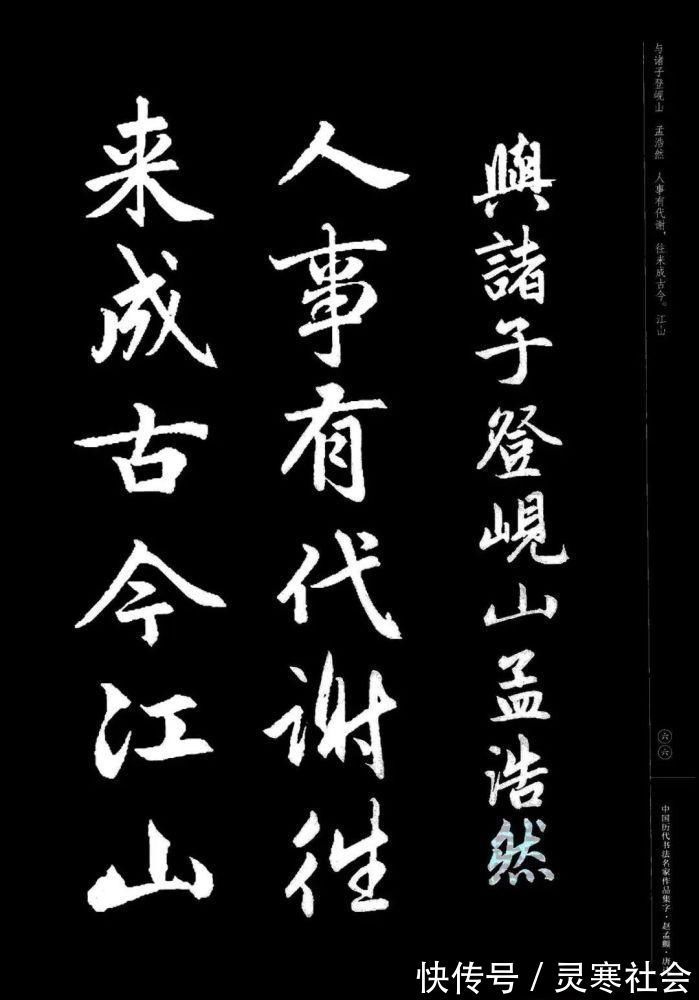 与诸子登岘山 孟浩然 人事有代谢，往来成古今。江山
六六
中国历代书法名家作品集字·赵孟頫·唐
與諸子登峴山孟浩然
人事有代謝往
来成古今江山
快传号／灵寒社会